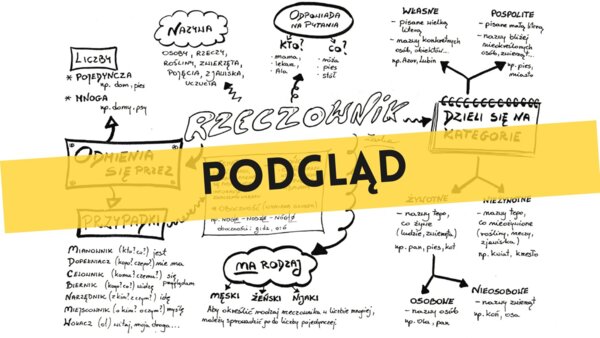 NAZYWA
OSOBY, RZECZY,
ROŚLINY, ZWIERZĘTA,
POJĘCIA, ZJAWISKA,
UCZUCIA
ODPOWIADA
NA PYTANIA
KTO?
- mama,
- lekarz,
- Ala
CO?
- pies
- stół
WŁASNE
- pisane wielką literą,
- nazwy konkretnych
osób, obiektów...
np. Azor, Lubin
POSPOLITE
- pisane małą literą,
- nazwy bliżej
nieokreślonych
osób, zwierząt...
np. pies,
miasto
LICZBY
* POJEDYNCZA
np. dom, pies
* MNOGA
np. domy, psy
RZECZOWNIK
DZIELI SIĘ NA
KATEGORIE
ODMIENIA
SIĘ PRZEZ
PODGLĄD
PRZYPADKI
MIANOWNIK (kto? co?) jest
DOPEŁNIACZ (kogo? czego?) nie ma
CELOWNIK (komu? czemu?) się
przyglądam
BIERNIK (kogo? co?) widzę
NARZĘDNIK (z kim? czym?) idę
MIEJSCOWNIK (o kim? o czym?) myślę
WOŁACZ (o!) witaj, moja droga...
np. NOGA - NODZE - NÓG
oboczności: g:dz, o:ó
MA RODZAJ
MĘSKI
ŻEŃSKI
NIJAKI
Aby określić rodzaj rzeczownika w liczbie mnogiej,
należy sprowadzić go do liczby pojedynczej.
ŻYWOTNE
- nazwy tego,
co żyje
(ludzie, zwierzęta)
np. pan, pies, kot
NIEŻYWOTNE
- nazwy tego,
co nieożywione
(rośliny, rzeczy,
zjawiska)
np. kwiat, krzesło
OSOBOWE
- nazwy osób
np. Ola, pan
NIEOSOBOWE
- nazwy zwierząt
np. koń, osa